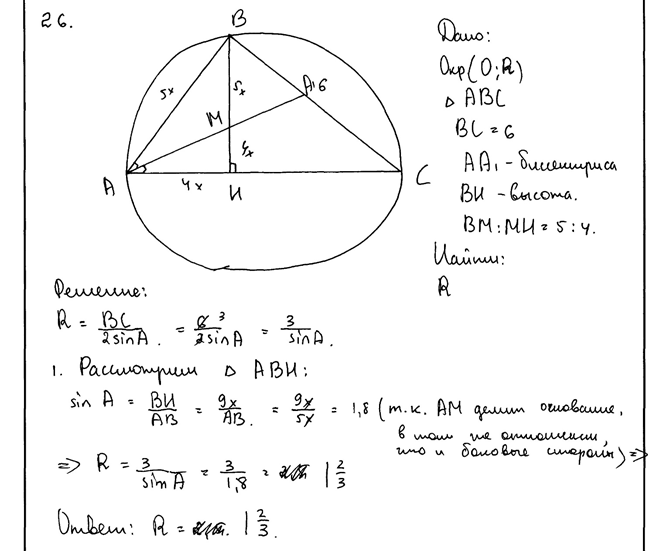 26.
B
Дано:
Окр(O;R)
△ ABC
BC = 6
AA₁ - биссектриса
BH - высота.
BM:MH = 5:4.
Найти:
R
5x
5x
A₁
6
M
4x
A
4x
H
C
Решение:
R = BC/2sinA. = 6 3/2sinA = 3/sinA.
1. Рассмотрим △ ABH:
sin A = BH/AB = 9x/AB. = 9x/5x = 1,8 (т.к. AM делит основание,
в том же отношении,
что и боковые стороны) =>
=> R = 3/sinA = 3/1,8 = 1 2/3
Ответ: R = 1 2/3.